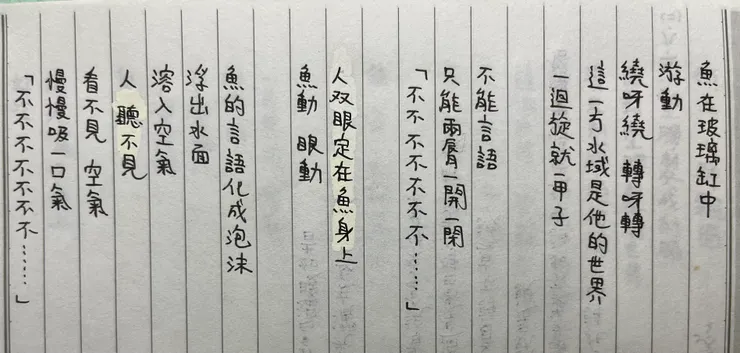 魚在玻璃缸中
游動
繞呀繞 轉呀轉
這一方水域是他的世界
一迴旋就一甲子
不能言語
只能兩唇一開一閉
「不不不不不不不……」
人双眼定在魚身上
魚動 眼動
魚的言語化成泡沫
浮出水面
溶入空氣
人聽不見
看不見 空氣
慢慢吸一口氣
「不不不不不不不……」